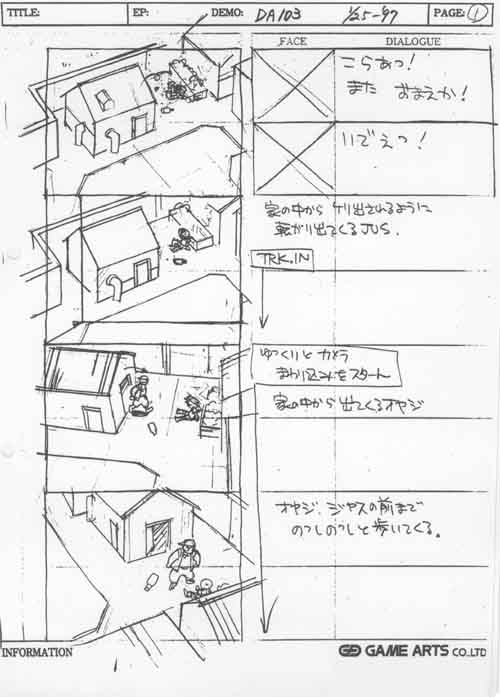 TITLE: EP: DEMO: DA103 1/25-'97 PAGE: 1
FACE DIALOGUE
こらあっ!
また おまえか!
いでえっ!
家の中から ケリ出されるように
転がり出てくるJUS.
TRK.IN
ゆっくりと カメラ
まわり込みをスタート
家の中から 出てくるオヤジ
オヤジ、ジャスの前まで
のっしのっしと歩いてくる。
INFORMATION
GAME ARTS CO.,LTD